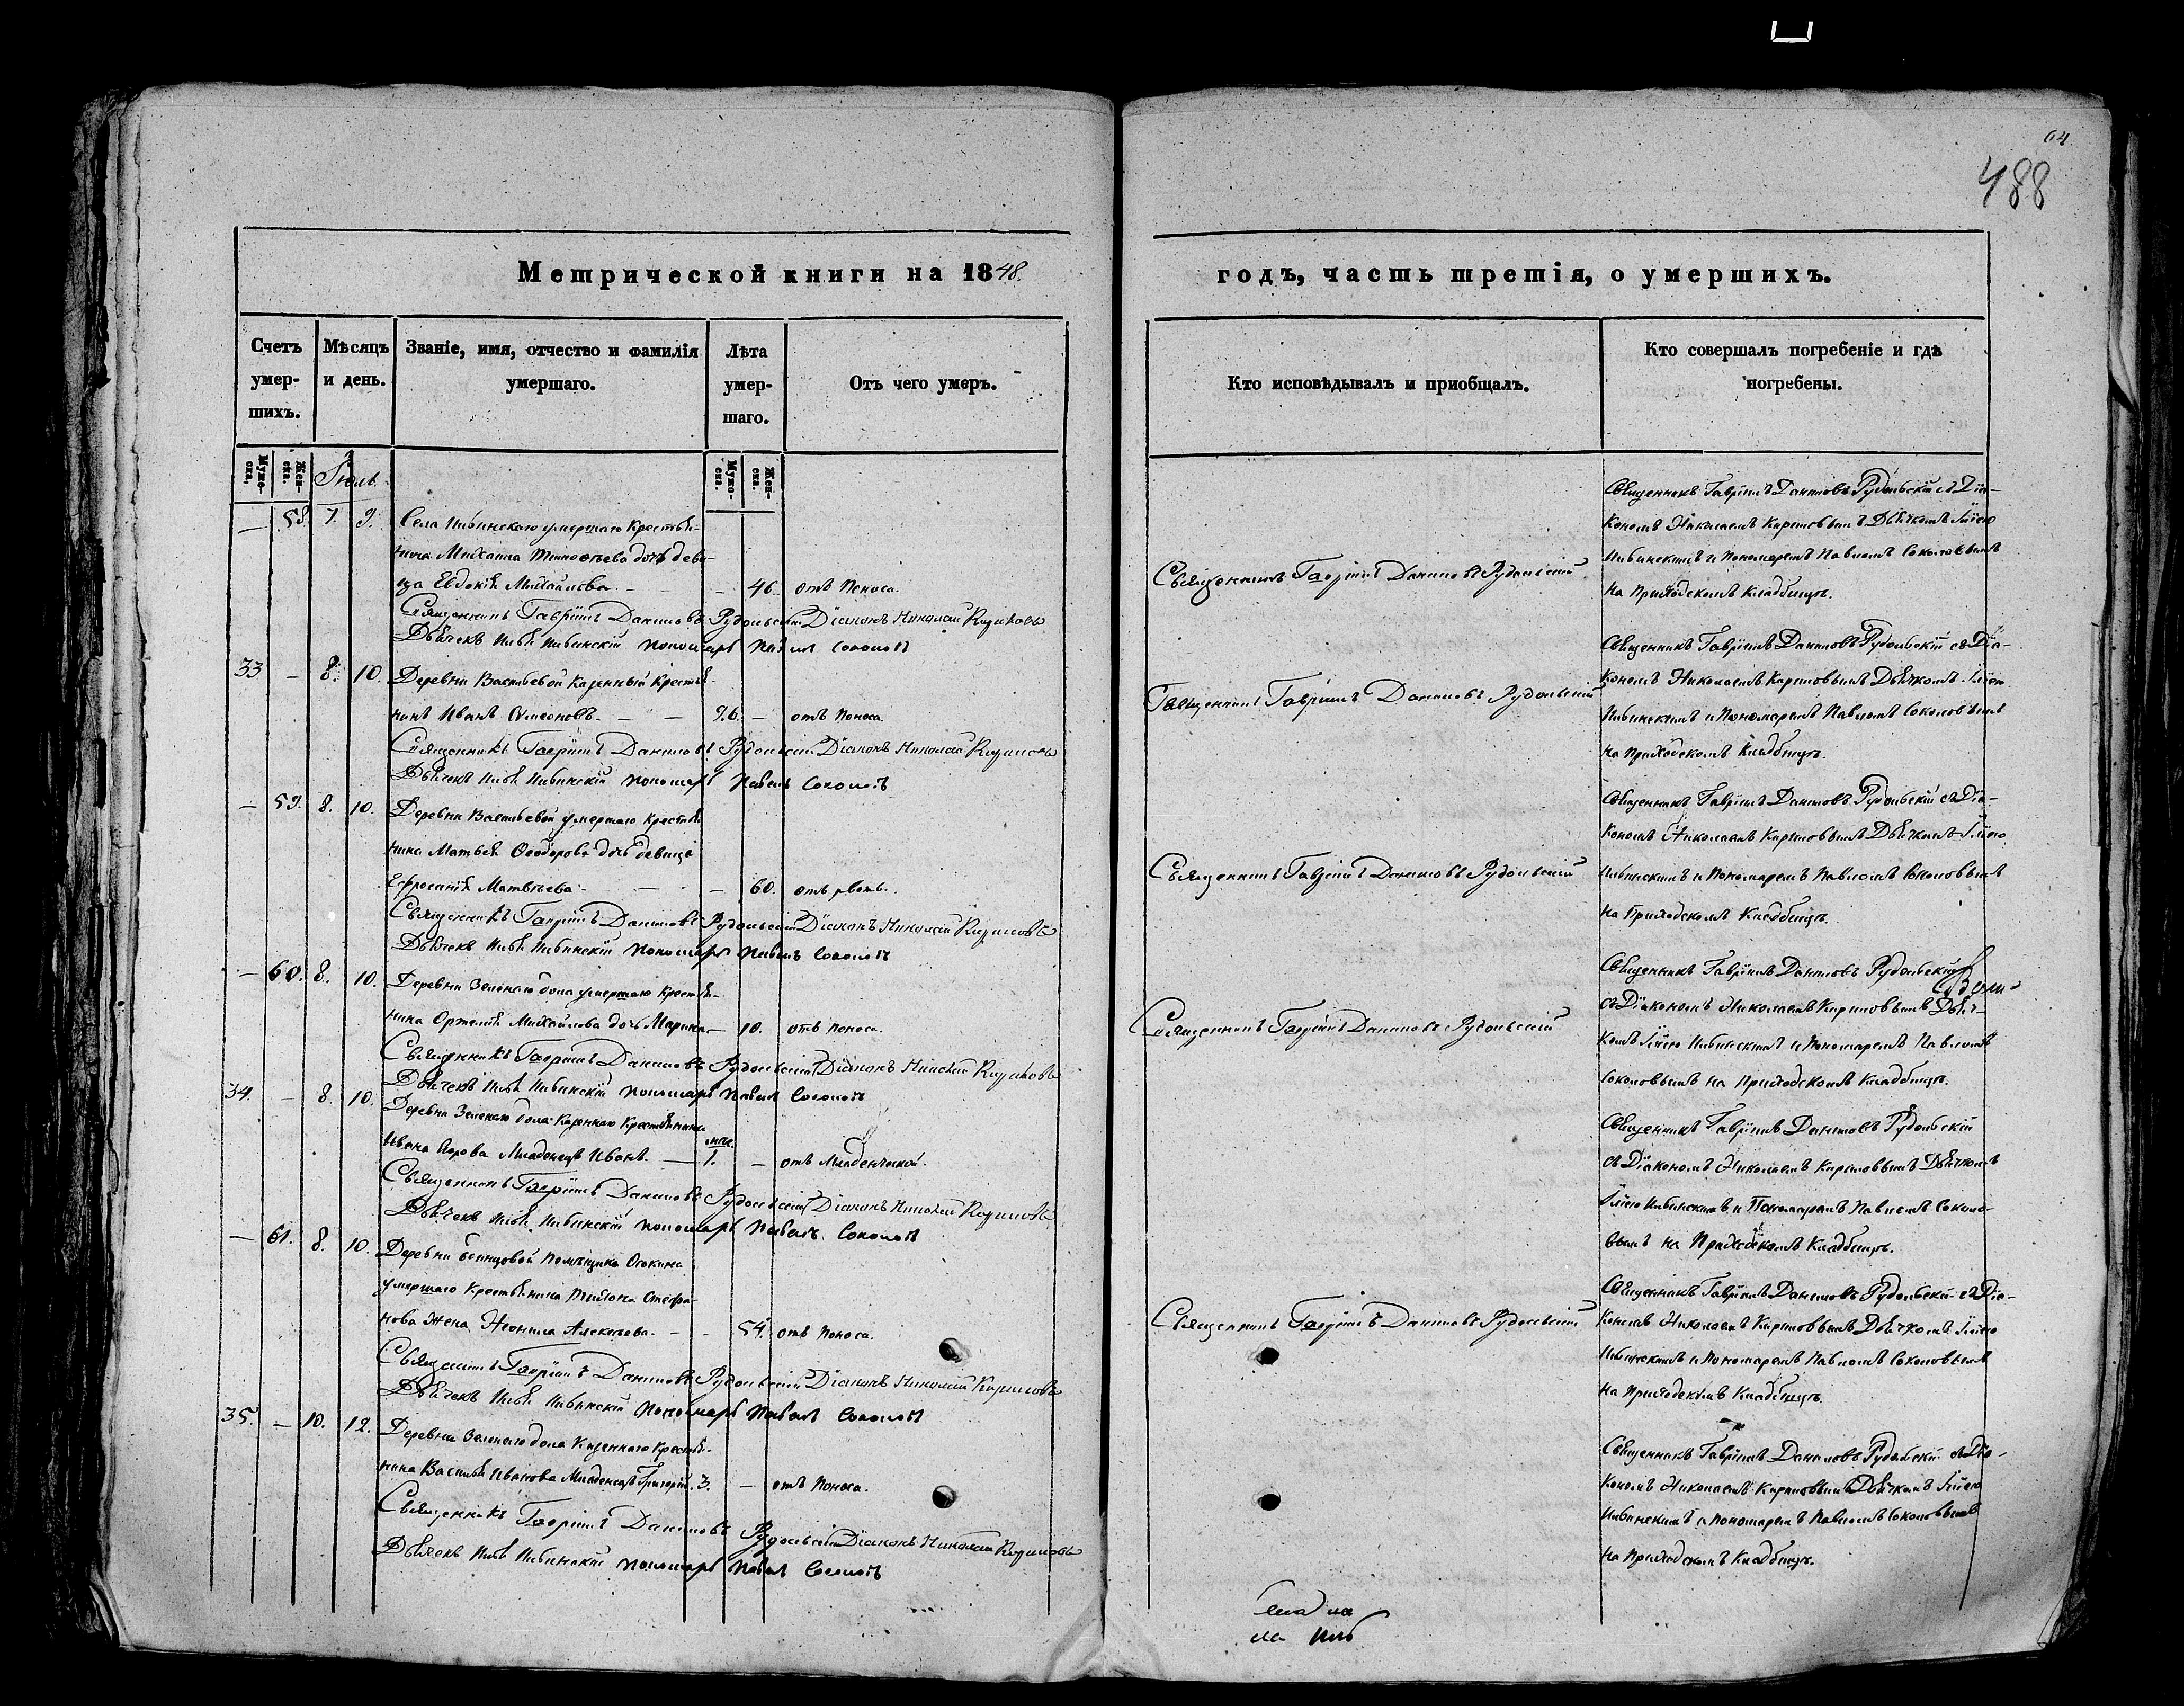 64
488
Метрической книги на 1848.
годъ, часть третія, о умершихъ.
Счетъ умер-шихъ.
Мѣсяцъ и день.
Званіе, имя, отчество и фамилія умершаго.
Лѣта умер-шаго.
Отъ чего умеръ.
Кто исповѣдывалъ и пріобщалъ.
Кто совершалъ погребеніе и гдѣ погребены.
Муже-ска.
Жен-ска.
Муже-ска.
Жен-ска.
Іюль.
— 58. 7. 9. Села Ивинскаго умершаго Крестья-
нина Михаила Тимоѳѣева дочь деви-
ца Евдокія Михайлова. — — 46. отъ Поноса.
Священникъ Гавріилъ Даниловъ Рудольскій Діаконъ Николай Кириловъ
Дьячекъ Ивинскій пономарь Павелъ Соколовъ
Священникъ Гавріилъ Даниловъ Рудольскій
Священникъ Гавріилъ Даниловъ Рудольскій съ Діа-
кономъ Николаемъ Кириловымъ Дьячкомъ
Ивинскимъ и Пономаремъ Павломъ Соколовымъ
на Приходскомъ Кладбищѣ.
33 — 8. 10. Деревни Васильевой Казенный Крестья-
нинъ Иванъ Симеоновъ. — — 96. — отъ Поноса.
Священникъ Гавріилъ Даниловъ Рудольскій Діаконъ Николай Кириловъ
Дьячекъ Ивинскій пономарь Павелъ Соколовъ
Священникъ Гавріилъ Даниловъ Рудольскій
Священникъ Гавріилъ Даниловъ Рудольскій съ Діа-
кономъ Николаемъ Кириловымъ Дьячкомъ
Ивинскимъ и Пономаремъ Павломъ Соколовымъ
на Приходскомъ Кладбищѣ.
— 59. 8. 10. Деревни Васильевой умершаго Крестья-
нина Матвѣя Ѳеодорова дочь девица
Ефросинія Матвѣева — — — 60. отъ рвоты.
Священникъ Гавріилъ Даниловъ Рудольскій Діаконъ Николай Кириловъ
Дьячекъ Ивинскій пономарь Павелъ Соколовъ
Священникъ Гавріилъ Даниловъ Рудольскій
Священникъ Гавріилъ Даниловъ Рудольскій съ Діа-
кономъ Николаемъ Кириловымъ Дьячкомъ
Ивинскимъ и Пономаремъ Павломъ Соколовымъ
на Приходскомъ Кладбищѣ.
— 60. 8. 10. Деревни Зеленаго дола умершаго Крестья-
нина Михайлова дочь Марина — 10. отъ поноса.
Священникъ Гавріилъ Даниловъ Рудольскій Діаконъ Николай Кириловъ
Дьячекъ Ивинскій пономарь Павелъ Соколовъ
Священникъ Гавріилъ Даниловъ Рудольскій
Священникъ Гавріилъ Даниловъ Рудольскій
съ Діакономъ Николаемъ Кириловымъ Дьяч-
комъ Ивинскимъ и Пономаремъ Павломъ
Соколовымъ на Приходскомъ Кладбищѣ.
34. — 8. 10. Деревни Зеленаго дола Казеннаго Крестьянина
Ивана Младенецъ Иванъ. — 1. — отъ Младенческой.
Священникъ Гавріилъ Даниловъ Рудольскій Діаконъ Николай Кириловъ
Дьячекъ Ивинскій пономарь Павелъ Соколовъ
Священникъ Гавріилъ Даниловъ Рудольскій
съ Діакономъ Николаемъ Кириловымъ Дьячкомъ
Ивинскимъ и Пономаремъ Павломъ Соколо-
вымъ на Приходскомъ Кладбищѣ.
— 61. 8. 10. Деревни Помѣщика Осокина
умершаго Крестьянина Стефа-
нова Жена Неонила Алексѣева. — — 54. отъ Поноса.
Священникъ Гавріилъ Даниловъ Рудольскій Діаконъ Николай Кириловъ
Дьячекъ Ивинскій пономарь Павелъ Соколовъ
Священникъ Гавріилъ Даниловъ Рудольскій
Священникъ Гавріилъ Даниловъ Рудольскій съ Діа-
кономъ Николаемъ Кириловымъ Дьячкомъ
Ивинскимъ и Пономаремъ Павломъ Соколовымъ
на Приходскомъ Кладбищѣ.
35. — 10. 12. Деревни Зеленаго дола Казеннаго Крестья-
нина Василья Иванова Младенецъ Григорій. 3. — отъ Поноса.
Священникъ Гавріилъ Даниловъ Рудольскій Діаконъ Николай Кириловъ
Дьячекъ Ивинскій пономарь Павелъ Соколовъ
Священникъ Гавріилъ Даниловъ Рудольскій съ Діа-
кономъ Николаемъ Кириловымъ Дьячкомъ
Ивинскимъ и Пономаремъ Павломъ Соколовымъ
на Приходскомъ Кладбищѣ.